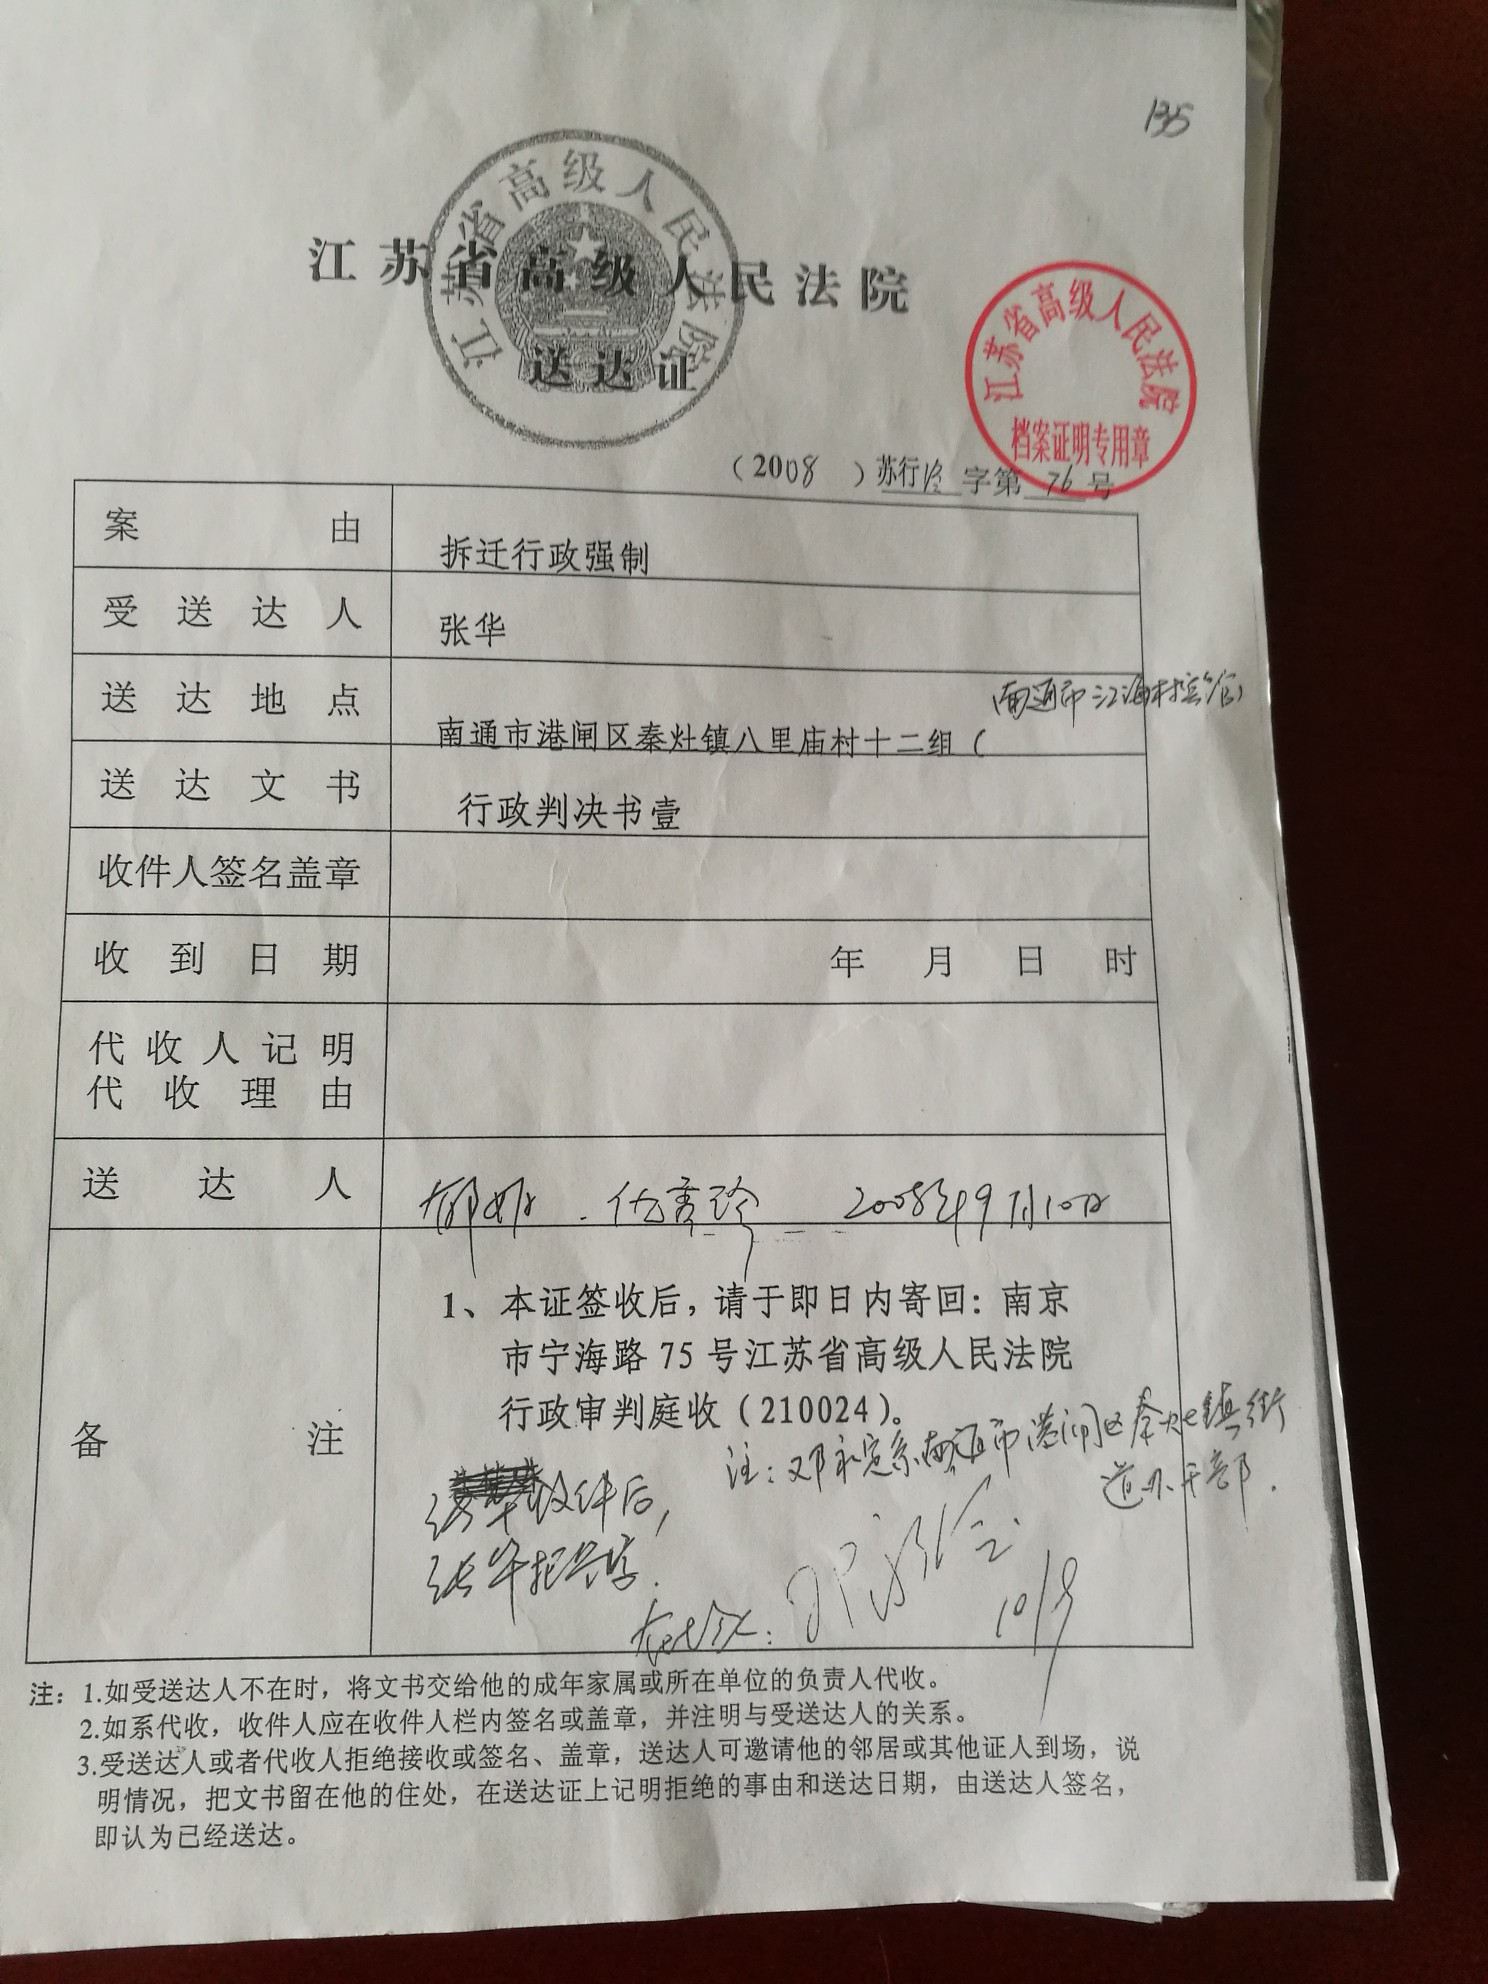 135
江苏省高级人民法院
江苏省高级人民法院
送达证
江苏省高级人民法院
档案证明专用章
(2008)苏行终字第76号
案由
拆迁行政强制
受送达人
张华
送达地点
南通市江海村宾馆)
南通市港闸区秦灶镇八里庙村十二组(
送达文书
行政判决书壹
收件人签名盖章
收到日期
年 月 日 时
代收人记明
代收理由
送达人
郁娜 2008年9月10日
备注
1、本证签收后,请于即日内寄回:南京
市宁海路75号江苏省高级人民法院
行政审判庭收(210024)。
注:邓永宽系南通市港闸区秦灶镇街
道办干部.
收件后,
张华拒签字.
在场人:
10/9
注:1.如受送达人不在时,将文书交给他的成年家属或所在单位的负责人代收。
2.如系代收,收件人应在收件人栏内签名或盖章,并注明与受送达人的关系。
3.受送达人或者代收人拒绝接收或签名、盖章,送达人可邀请他的邻居或其他证人到场,说
明情况,把文书留在他的住处,在送达证上记明拒绝的事由和送达日期,由送达人签名,
即认为已经送达。